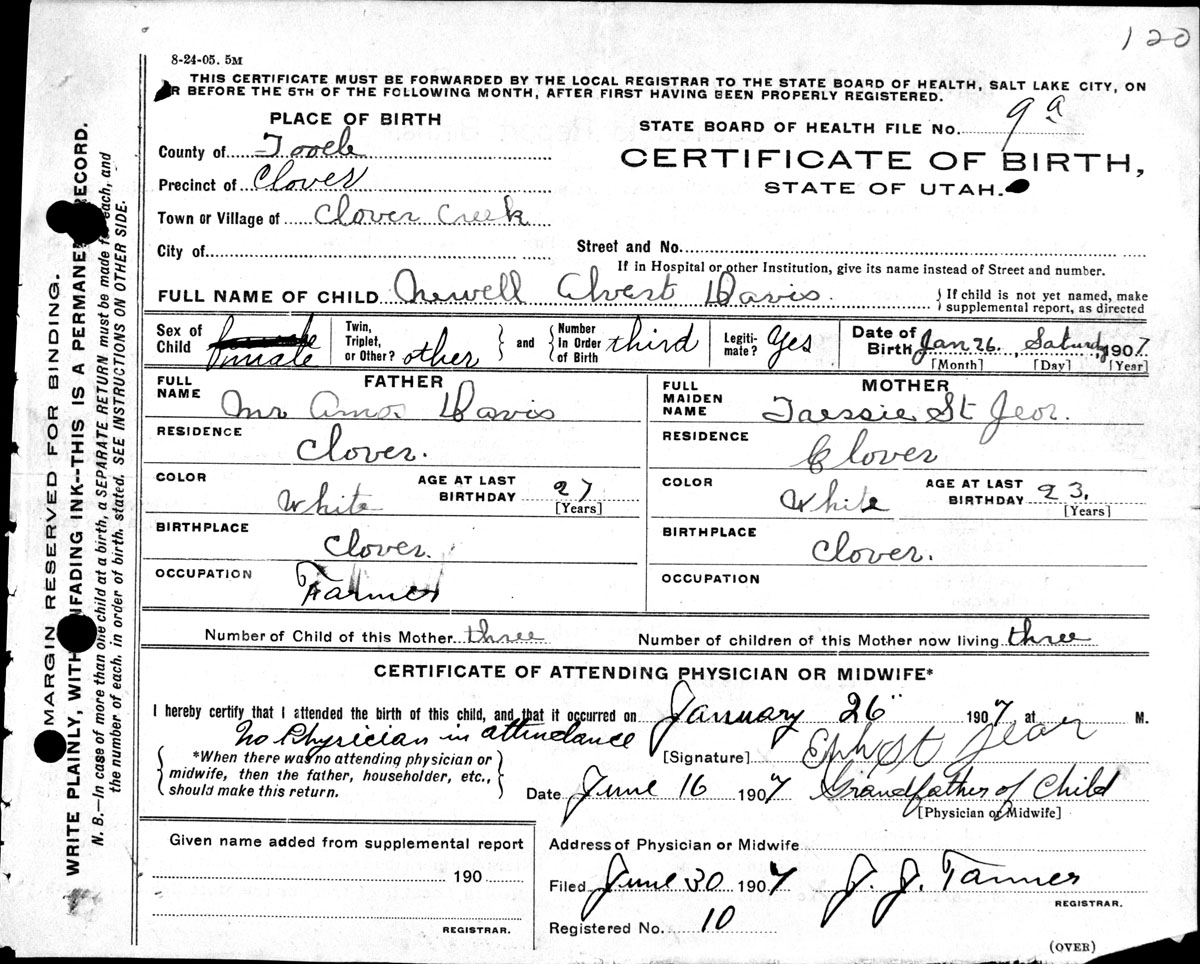 120
8-24-05. 5M
THIS CERTIFICATE MUST BE FORWARDED BY THE LOCAL REGISTRAR TO THE STATE BOARD OF HEALTH, SALT LAKE CITY, ON
R BEFORE THE 5TH OF THE FOLLOWING MONTH, AFTER FIRST HAVING BEEN PROPERLY REGISTERED.
PLACE OF BIRTH
STATE BOARD OF HEALTH FILE NO. 9a
County of Tooele
CERTIFICATE OF BIRTH,
Precinct of Clover
STATE OF UTAH.
Town or Village of Clover Creek
City of
Street and No.
If in Hospital or other Institution, give its name instead of Street and number.
FULL NAME OF CHILD Newell Alvert Davis
If child is not yet named, make
supplemental report, as directed
Sex of Child female
Twin, Triplet, or Other? other
and
Number In Order of Birth third
Legiti- mate? Yes
Date of Birth Jan 26, Saturday 1907
[Month] [Day] [Year]
FATHER
FULL NAME Mr Amos Davis
RESIDENCE
Clover.
COLOR White
AGE AT LAST BIRTHDAY 27
[Years]
BIRTHPLACE
Clover.
OCCUPATION
Farmer
MOTHER
FULL MAIDEN NAME Taessie St Jeor.
RESIDENCE
Clover
COLOR White
AGE AT LAST BIRTHDAY 23.
[Years]
BIRTHPLACE
Clover.
OCCUPATION
Number of Child of this Mother three
Number of children of this Mother now living three
CERTIFICATE OF ATTENDING PHYSICIAN OR MIDWIFE*
I hereby certify that I attended the birth of this child, and that it occurred on January 26" 1907 at M.
No Physician in attendance
[Signature] Eph St Jeor
*When there was no attending physician or
midwife, then the father, householder, etc.,
should make this return.
Date June 16 1907 Grandfather of Child
[Physician or Midwife]
Given name added from supplemental report
190
REGISTRAR.
Address of Physician or Midwife
Filed June 30 1907 J. J. Tanner
REGISTRAR.
Registered No. 10
(OVER)
MARGIN RESERVED FOR BINDING.
WRITE PLAINLY, WITH UNFADING INK--THIS IS A PERMANENT RECORD.
N. B.—In case of more than one child at a birth, a SEPARATE RETURN must be made for each, and
the number of each, in order of birth, stated. SEE INSTRUCTIONS ON OTHER SIDE.